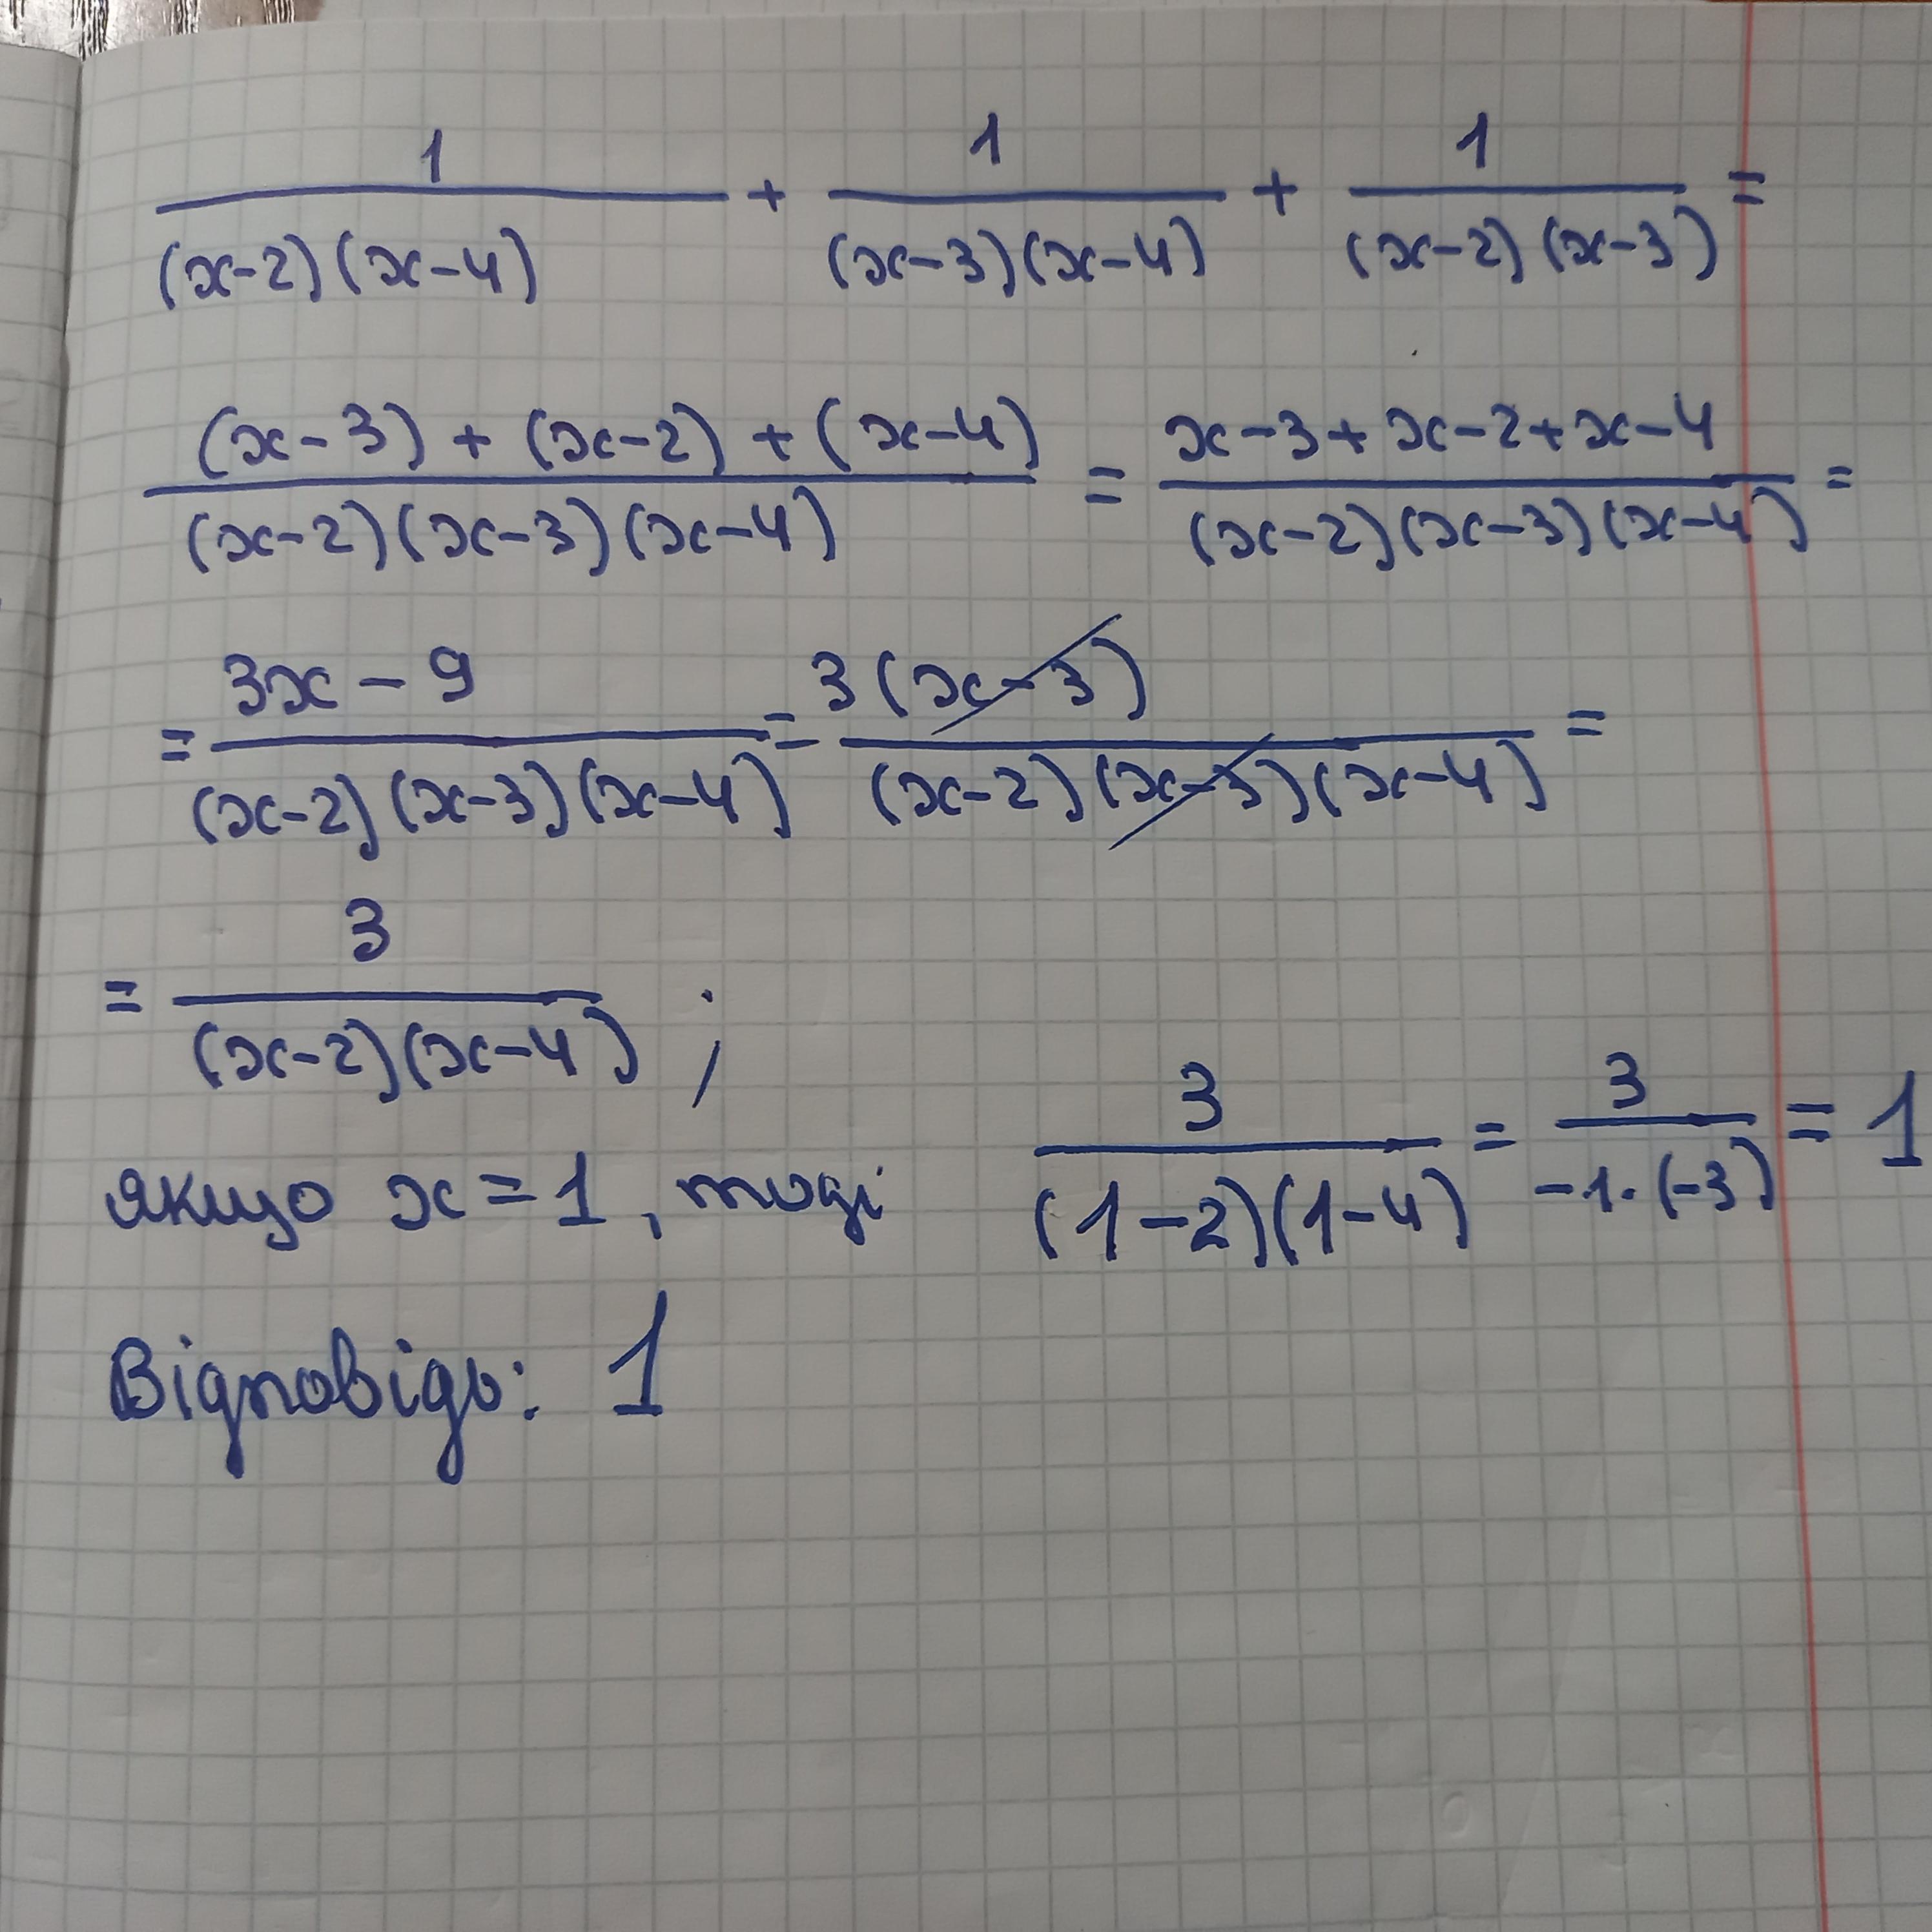 1/((x-2)(x-4)) + 1/((x-3)(x-4)) + 1/((x-2)(x-3)) =
((x-3)+(x-2)+(x-4))/((x-2)(x-3)(x-4)) = (x-3+x-2+x-4)/((x-2)(x-3)(x-4)) =
= (3x-9)/((x-2)(x-3)(x-4)) = 3(x-3)/((x-2)(x-3)(x-4)) =
= 3/((x-2)(x-4)) ;
якщо x=1, тоді 3/((1-2)(1-4)) = 3/(-1·(-3)) = 1
Відповідь: 1